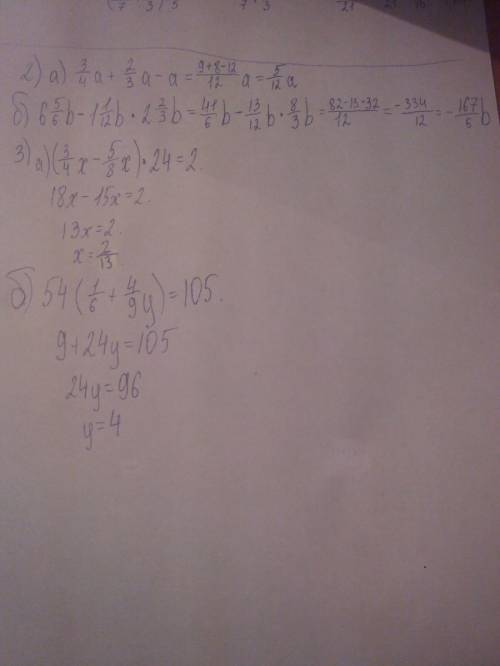 2) а) 3/4 a + 2/3 a - a = 9+8-12/12 a = 5/12 a
б) 6 5/6 b - 1 1/12 b · 2 2/3 b = 41/6 b - 13/12 b · 8/3 b = 82-13·32/12 = -334/12 = - 167/6 b
3) а) (3/4 x - 5/8 x) · 24 = 2.
18x - 15x = 2.
13x = 2.
x = 2/13.
б) 54 (1/6 + 4/9 y) = 105.
9 + 24y = 105
24y = 96
y = 4